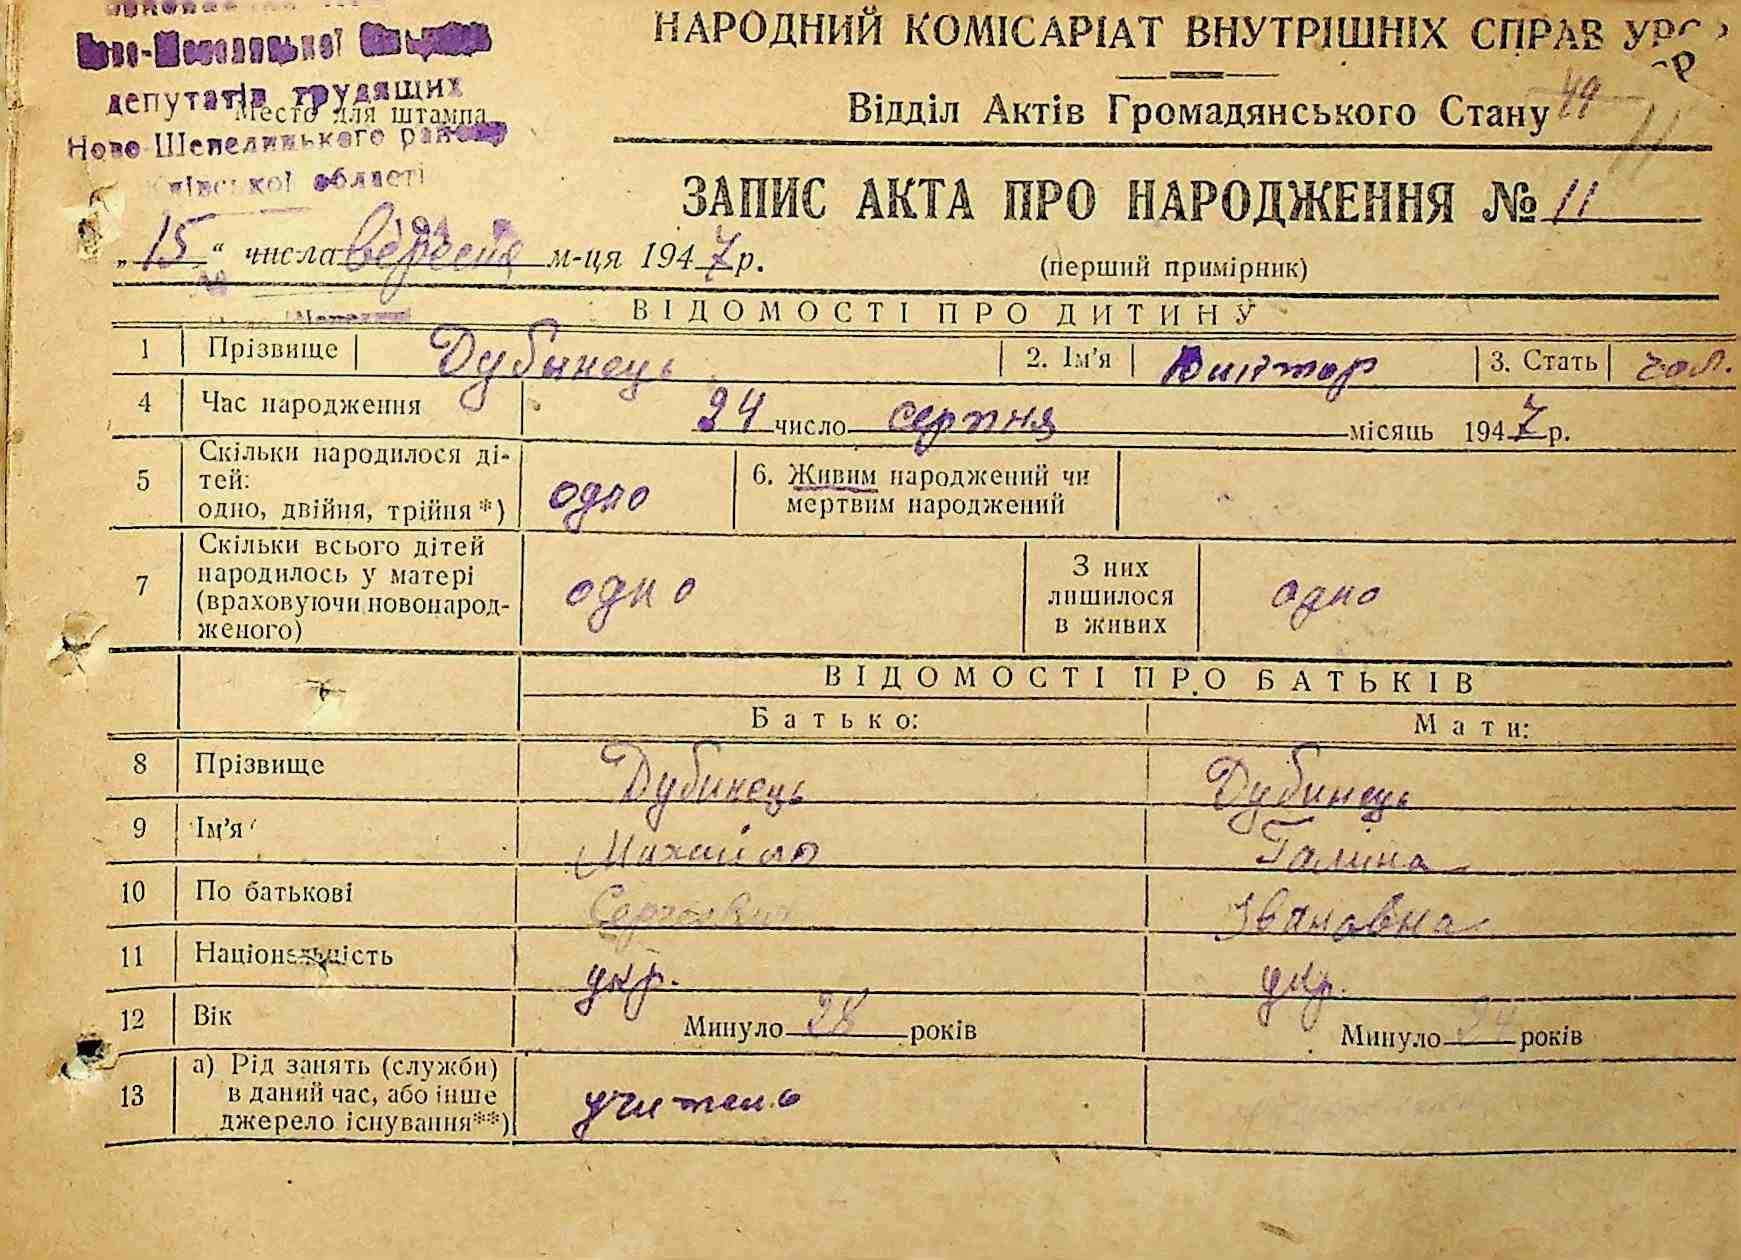 депутатів трудящих
Место для штампа
Ново-Шепелицького району
Київської області
НАРОДНИЙ КОМІСАРІАТ ВНУТРІШНІХ СПРАВ УРСР
Відділ Актів Громадянського Стану
49
11
ЗАПИС АКТА ПРО НАРОДЖЕННЯ № 11
„15“ числа вересня м-ця 1947 р.
(перший примірник)
ВІДОМОСТІ ПРО ДИТИНУ
1 Прізвище Дубынець 2. Ім’я Виктор 3. Стать чол.
4 Час народження 24 число серпня місяць 1947 р.
5 Скільки народилося ді-
тей:
одно, двійня, трійня*) одно
6. Живим народжений чи
мертвим народжений
7 Скільки всього дітей
народилось у матері
(враховуючи новонарод-
женого) одно
З них
лишилося
в живих одно
ВІДОМОСТІ ПРО БАТЬКІВ
Батько: Мати:
8 Прізвище Дубинець Дубинець
9 Ім’я Михайло Галина
10 По батькові Сергеевич Івановна
11 Національність укр. укр.
12 Вік Минуло 28 років Минуло 24 років
13 а) Рід занять (служби)
в даний час, або інше
джерело існування**) учитель